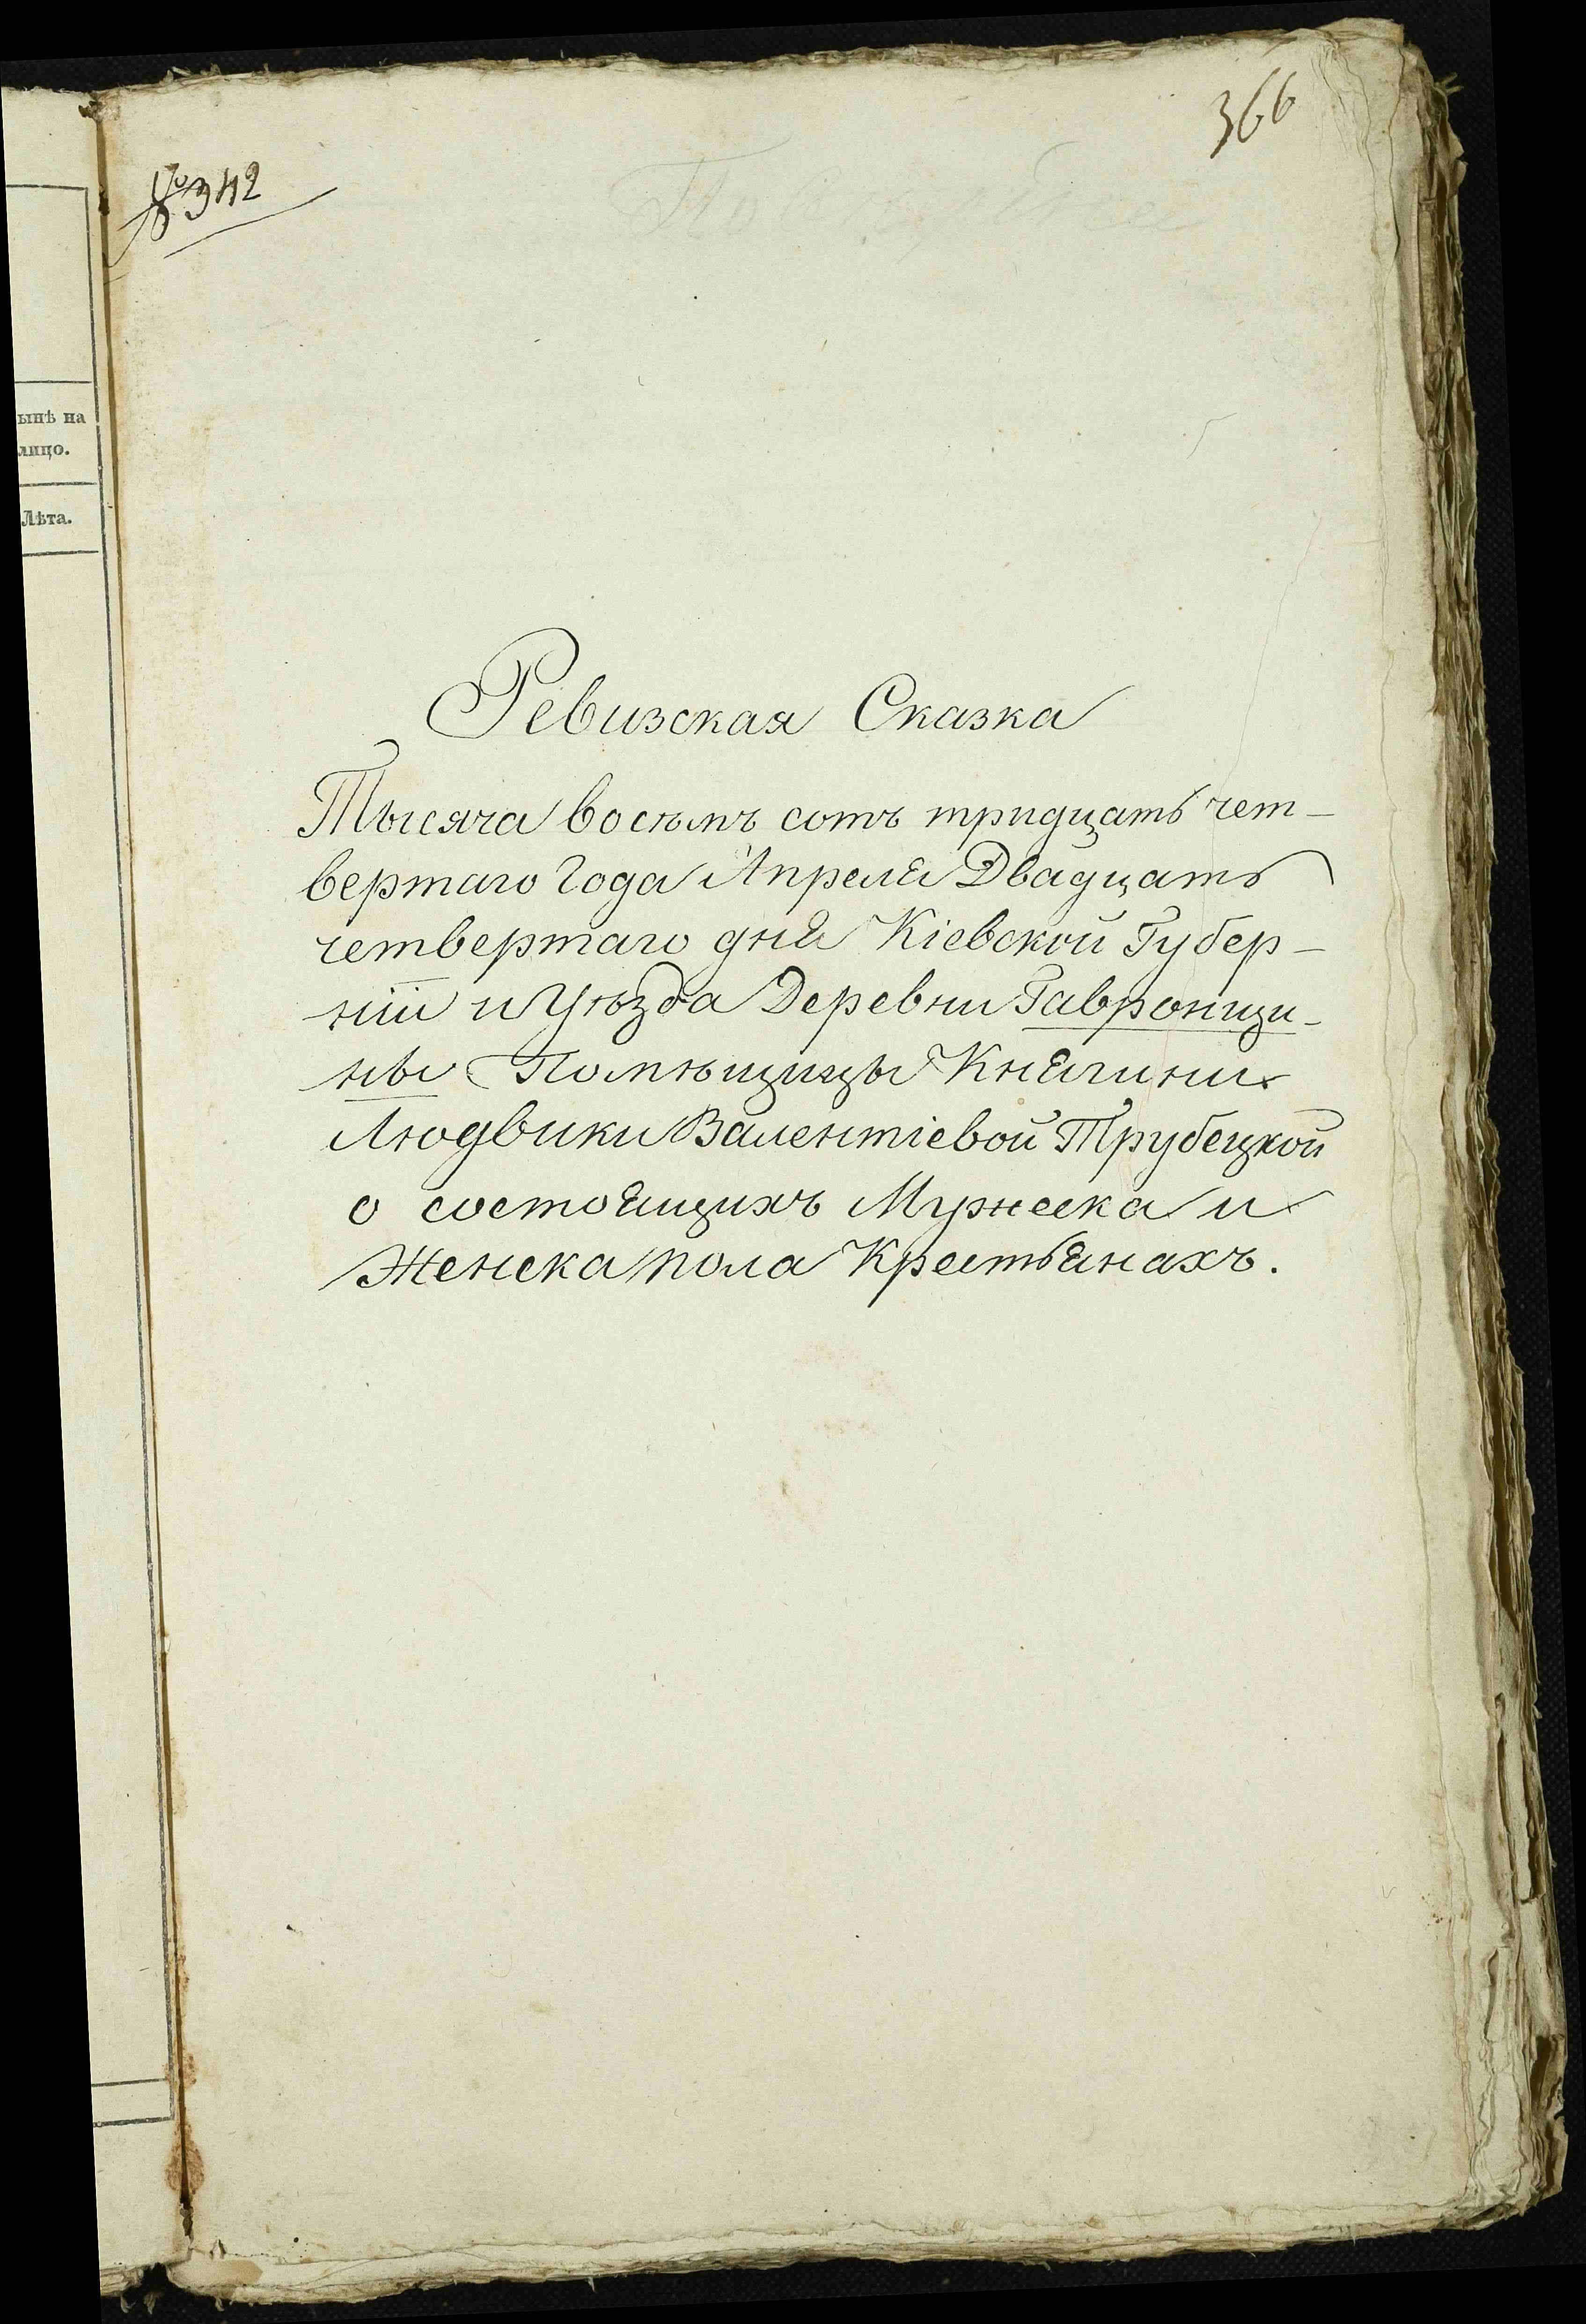 366
№ 342
ынѣ на
лицо.
Лѣта.
Ревизская Сказка
Тысяча восѣмъ сотъ тридцать чет-
вертаго Года Апреля Двадцать
четвертаго дня Кіевской Губер-
ніи и Уѣзда Деревни Гавронщи-
ны Помѣщицы Княгини
Людвики Валентіевой Трубецкой
о состоящихъ Мужеска и
Женска пола Крестьянахъ.